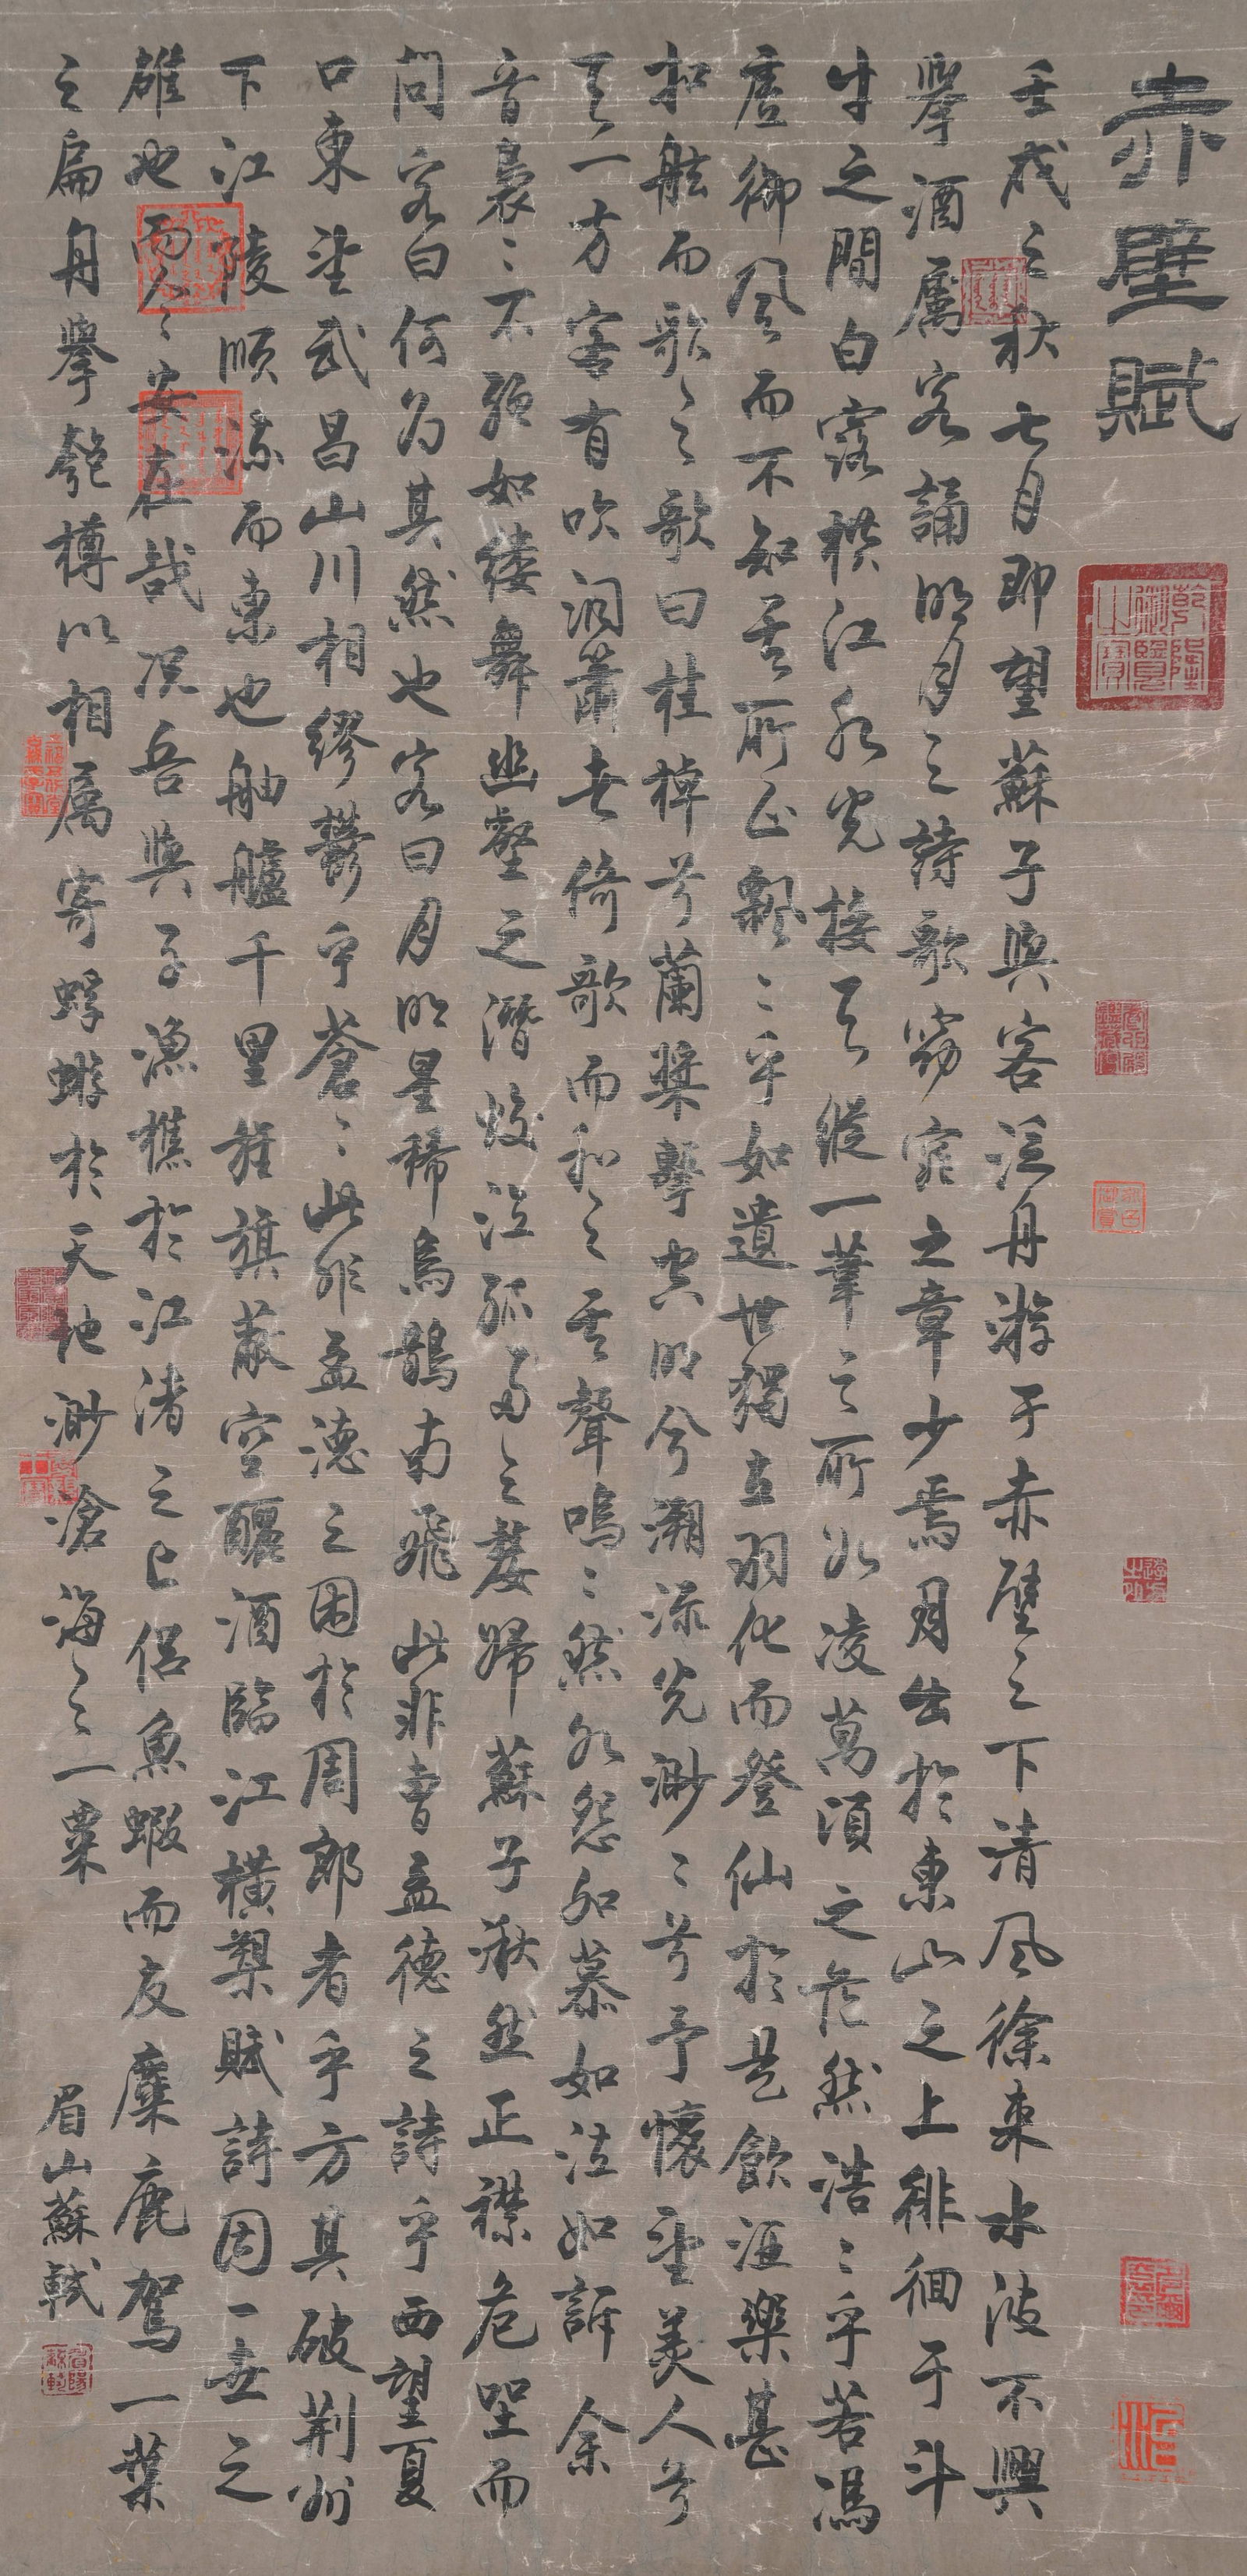 赤壁賦
壬戌之秋七月即望蘇子與客泛舟游于赤壁之下清風徐來水波不興
舉酒屬客誦明月之詩歌窈窕之章少焉月出於東山之上徘徊于斗
牛之間白露橫江水光接天縱一葦之所如凌萬頃之茫然浩〻乎若馮
虛御風而不知其所止飄〻乎如遺世獨立羽化而登仙於是飲酒樂甚
扣舷而歌之歌曰桂棹兮蘭槳擊空明兮溯流光渺〻兮予懷望美人兮
天一方客有吹洞簫者倚歌而和之其聲嗚〻然如怨如慕如泣如訴余
音裊〻不絕如縷舞幽壑之潛蛟泣孤舟之嫠婦蘇子愀然正襟危坐而
問客曰何為其然也客曰月明星稀烏鵲南飛此非曹孟德之詩乎西望夏
口東望武昌山川相繆鬱乎蒼〻此非孟德之困於周郎者乎方其破荊州
下江陵順流而東也舳艫千里旌旗蔽空釃酒臨江橫槊賦詩固一世之
雄也而今安在哉況吾與子漁樵於江渚之上侶魚蝦而友麋鹿駕一葉
之扁舟舉匏樽以相屬寄蜉蝣於天地渺滄海之一粟
眉山蘇軾
乾隆御覽之寶